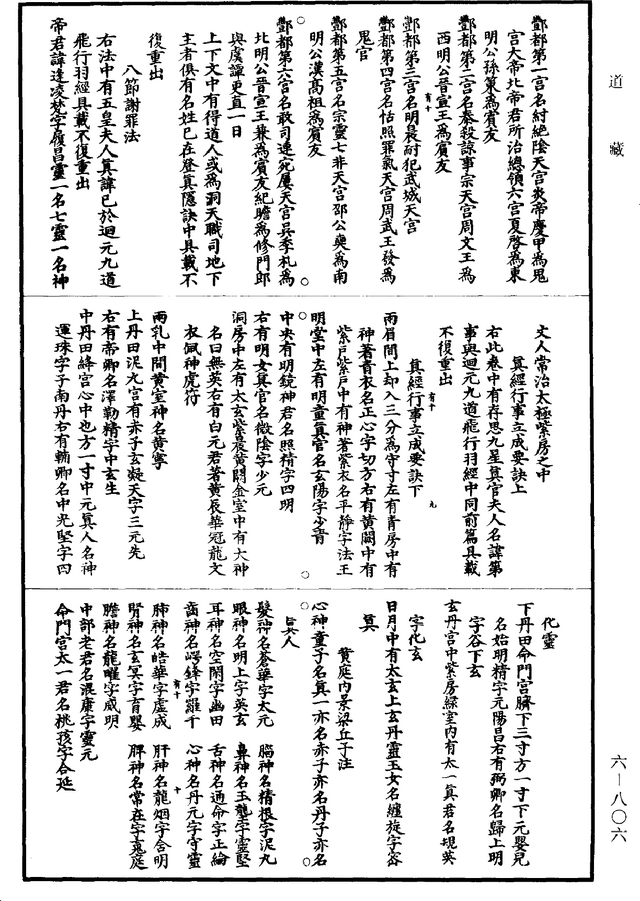 道藏
酆都第一宮名紂絕陰天宮炎帝慶甲為鬼
宮大帝北帝君所治總領六宮夏啓為東
明公孫策為賓友
酆都第二宮名泰殺諒事宗天宮周文王為
西明公晉宣王為賓友
酆都第三宮名明晨耐犯武城天宮
酆都第四宮名怙照罪氣天宮周武王發為
鬼官
酆都第五宮名宗靈七非天宮邵公奭為南
明公漢高祖為賓友
酆都第六宮名敢司連宛屢天宮吳季札為
北明公晉宣王兼為賓友紀瞻為修門郎
與虞譚更直一日
上下文中有得道人或為洞天職司地下
主者俱有名姓已在登真隱訣中具載不
復重出
八節謝罪法
右法中有五皇夫人真諱已於迴元九道
飛行羽經具載不復重出
帝君諱逢凌梵字履昌靈一名七靈一名神
文人常治太極紫房之中
真經行事立成要訣上
右此卷中有存思九星真官夫人名諱第
事與迴元九道飛行羽經中同前篇具載
不復重出
真經行事立成要訣下
兩眉間上却入三分為守寸左有青房中有
神著青衣名正心字切方右有黃闕中有
紫戶紫戶中有神著紫衣名平靜字法王
明堂中左有明童真官名玄陽字少青
中央有明鏡神君名照精字四明
右有明女真官名微陰字少元
洞房中左有太玄紫晨黃闕金室中有大神
名曰無英右有白元君著黃晨華冠龍文
衣佩神虎符
兩乳中間黃室神名黃寧
上丹田泥丸宮有赤子玄凝天字三元先
右有帝卿名澤勒精字中玄生
中丹田絳宮心中也方一寸中元真人名神
運珠字子南丹右有輔卿名中光堅字四
化靈
下丹田命門宮臍下三寸方一寸下元嬰兒
名始明精字元陽昌右有弼卿名歸上明
字谷下玄
玄丹宮中紫房綠室內有太一真君名規英
字化玄
日月中有太玄上玄丹靈玉女名纏旋字密
真
黃庭內景梁丘子注
心神童子名真一亦名赤子亦名丹子亦名
真人
髮神名蒼華字太元　腦神名精根字泥丸
眼神名明上字英玄　鼻神名玉壟字靈堅
耳神名空閑字幽田　舌神名通命字正綸
齒神名崿鋒字羅千　心神名丹元字守靈
肺神名皓華字虛成　肝神名龍烟字含明
腎神名玄冥字育嬰　脾神名常在字魂庭
膽神名龍曜字威明
中部老君名混康字靈元
命門宮太一君名桃孩字合延
六－八〇六